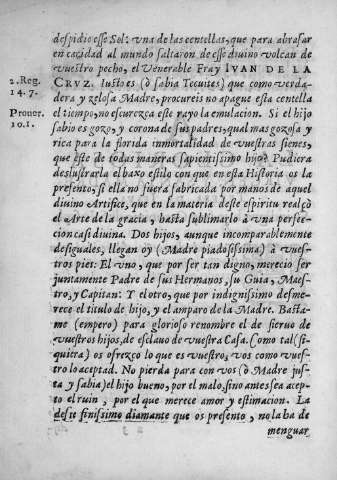 despidio esse Sol: vna de las centellas, que para abrasar
en caridad al mundo saltaron de esse diuino volcan de
vuestro pecho, el Venerable Fray IVAN DE LA
2. Reg. 14. 7.
CRVZ. Iusto es (ò sabia Tecuites) que como verda-
dera y zelosa Madre, procureis no apague esta centella
Prouer. 10. 1.
el tiempo, no escurezca este rayo la emulacion. Si el hijo
sabio es gozo, y corona de sus padres, qual mas gozosa y
rica para la florida inmortalidad de vuestras sienes,
que éste de todas maneras sapientissimo hijo? Pudiera
deslustrarla el baxo estilo con que en esta Historia os la
presento, si ella no fuera fabricada por manos de aquel
diuino Artifice, que en la materia deste espiritu realçò
el Arte de la gracia, hasta sublimarlo à vna perfec-
cion casi diuina. Dos hijos, aunque incomparablemente
desiguales, llegan oy (Madre piadosissima) à vues-
tros pies: El vno, que por ser tan digno, merecio ser
juntamente Padre de sus Hermanos, su Guia, Maes-
tro, y Capitan: Y el otro, que por indignissimo desme-
rece el titulo de hijo, y el amparo de la Madre. Basta-
me (empero) para glorioso renombre el de sieruo de
vuestros hijos, de esclauo de vuestra Casa. Como tal (si-
quiera) os ofrezco lo que es vuestro, vos como vues-
tro lo aceptad. No pierda para con vos (ò Madre jus-
ta y sabia) el hijo bueno, por el malo, sino antes sea acep-
to el ruin, por el que merece amor y estimacion. La
deste finissimo diamante que os presento, no la ha de
menguar